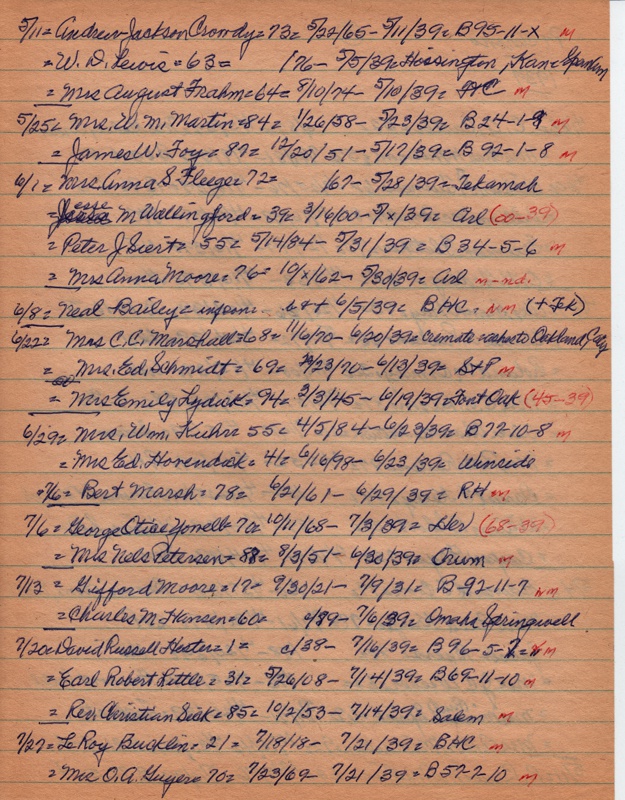 5/11 = Andrew Jackson Crowdy = 73 = 5/22/65 - 5/11/39 = B95-11-X m
= W. D. Lewis = 63 = /76 - 5/5/39 = Hissington, Kan =
= Mrs August Frahm = 64 = 8/10/74 - 5/10/39 = HC m
5/25 = Mrs. W. M. Martin = 84 = 1/26/58 - 5/23/39 = B 24-1-9 m
= James W. Foy = 87 = 12/20/51 - 5/17/39 = B 92-1-8 m
6/1 = Mrs Anna S Fleege = 72 = /67 - 5/28/39 = Tekamah
= Jesse M Wallingford = 39 = 3/16/00 - 5/x/39 = Arl (00-39)
= Peter J Siert = 55 = 5/14/84 - 5/31/39 = B 34-5-6 m
= Mrs Anna Moore = 76 = 10/x/62 - 5/30/39 = Arl m-nd.
6/8 = Neal Bailey = 6/5/39 = BHC = Nm (+Fk)
6/22 = Mrs C.C. Marshall = 68 = 11/6/70 - 6/20/39 = cremate = ashes to Oakland, Caly
= Mrs. Ed. Schmidt = 69 = /23/70 - 6/13/39 = St P m
= Mrs Emily Lydick = 94 = 3/3/45 - 6/19/39 = Font Oak (45-39)
6/29 = Mrs. Wm. Kuhr = 55 = 4/5/84 - 6/23/39 = B 77-10-8 m
= Mrs Ed. Hovendick = 41 = 6/16/98 - 6/23/39 = Winside
7/6 = Bert Marsh = 78 = 6/21/61 - 6/29/39 = RH m
7/6 = George Otice Yowell = 70 = 10/11/68 - 7/3/39 = Her (68-39)
= Mrs Nels Petersen = 88 = 8/3/51 - 6/30/39 = Orum m
7/13 = Gifford Moore = 17 = 9/30/21 - 7/9/31 = B-92-11-7 Nm
= Charles M. Hansen = 60 = c/89 - 7/6/39 = Omaha Springwell
7/20 = David Russell Hester = 1 = c/38 - 7/16/39 = B 96-5- m
= Earl Robert Little = 31 = 5/26/08 - 7/14/39 = B 69-11-10 m
= Rev. Christian Sick = 85 = 10/2/53 - 7/14/39 = Salem m
7/27 = Le Roy Bucklin = 21 = 7/18/18 - 7/21/39 = BHC m
= Mrs O. A. Guyer = 70 = 7/23/69 - 7/21/39 = B 57-7-10 m